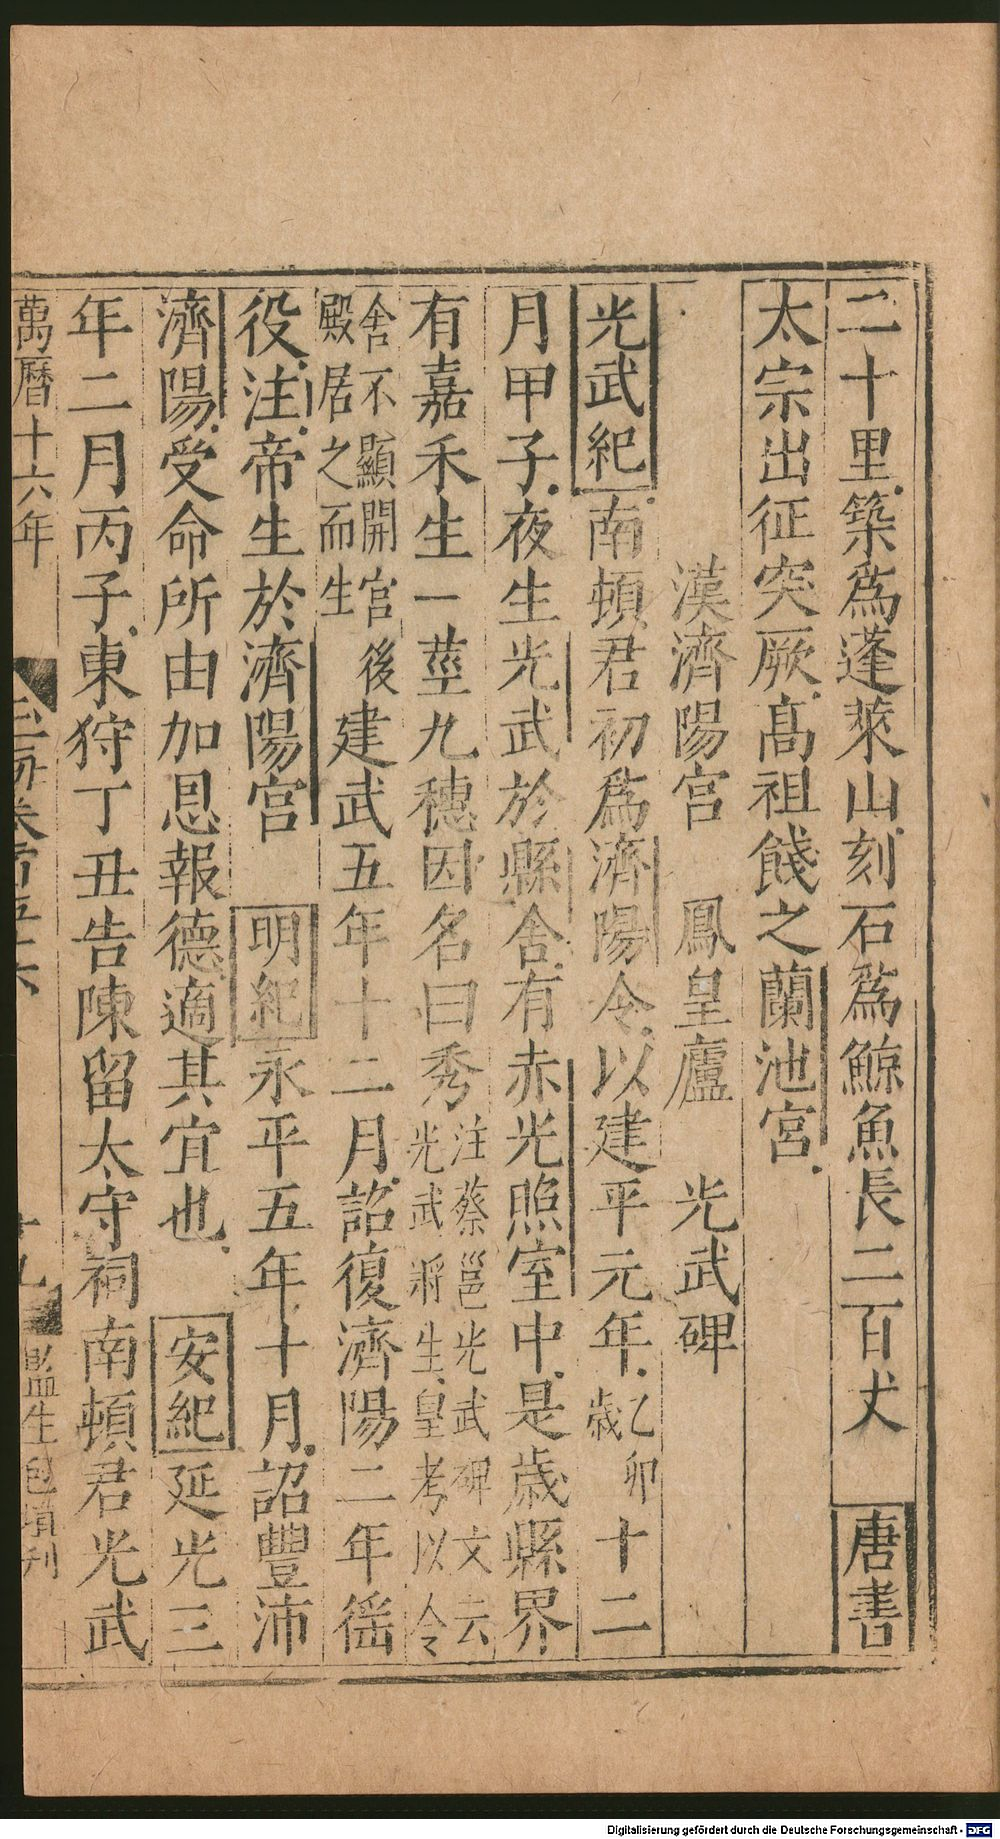 二十里築爲蓬萊山刻石爲鯨魚長二百丈　唐書
太宗出征突厥髙祖餞之蘭池宮
漢濟陽宮　鳳皇廬　光武碑
光武紀南頓君初爲濟陽令以建平元年乙卯歲十二
月甲子夜生光武於縣舍有赤光照室中是歲縣界
有嘉禾生一莖九穗因名曰秀注蔡邕光武碑文云光武將生皇考以令
舍不顯開宮後殿居之而生建武五年十二月詔復濟陽二年徭
役注帝生於濟陽宮　明紀永平五年十月詔豐沛
濟陽受命所由加恩報德適其宜也　安紀延光三
年二月丙子東狩丁丑告陳留太守祠南頓君光武
萬曆十六年　玉海卷百五十六　十九　監生包塤刊
Digitalisierung gefördert durch die Deutsche Forschungsgemeinschaft - DFG